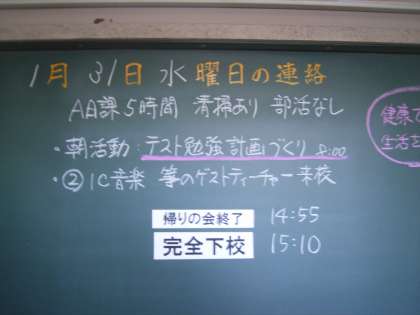 1月 31日 水 曜日の連絡
A日課5時間 清掃あり 部活なし
・朝活動:テスト勉強計画づくり 8:00
・②1C音楽 箏のゲストティーチャー来校
帰りの会終了 14:55
完全下校 15:10
健康で
生活を